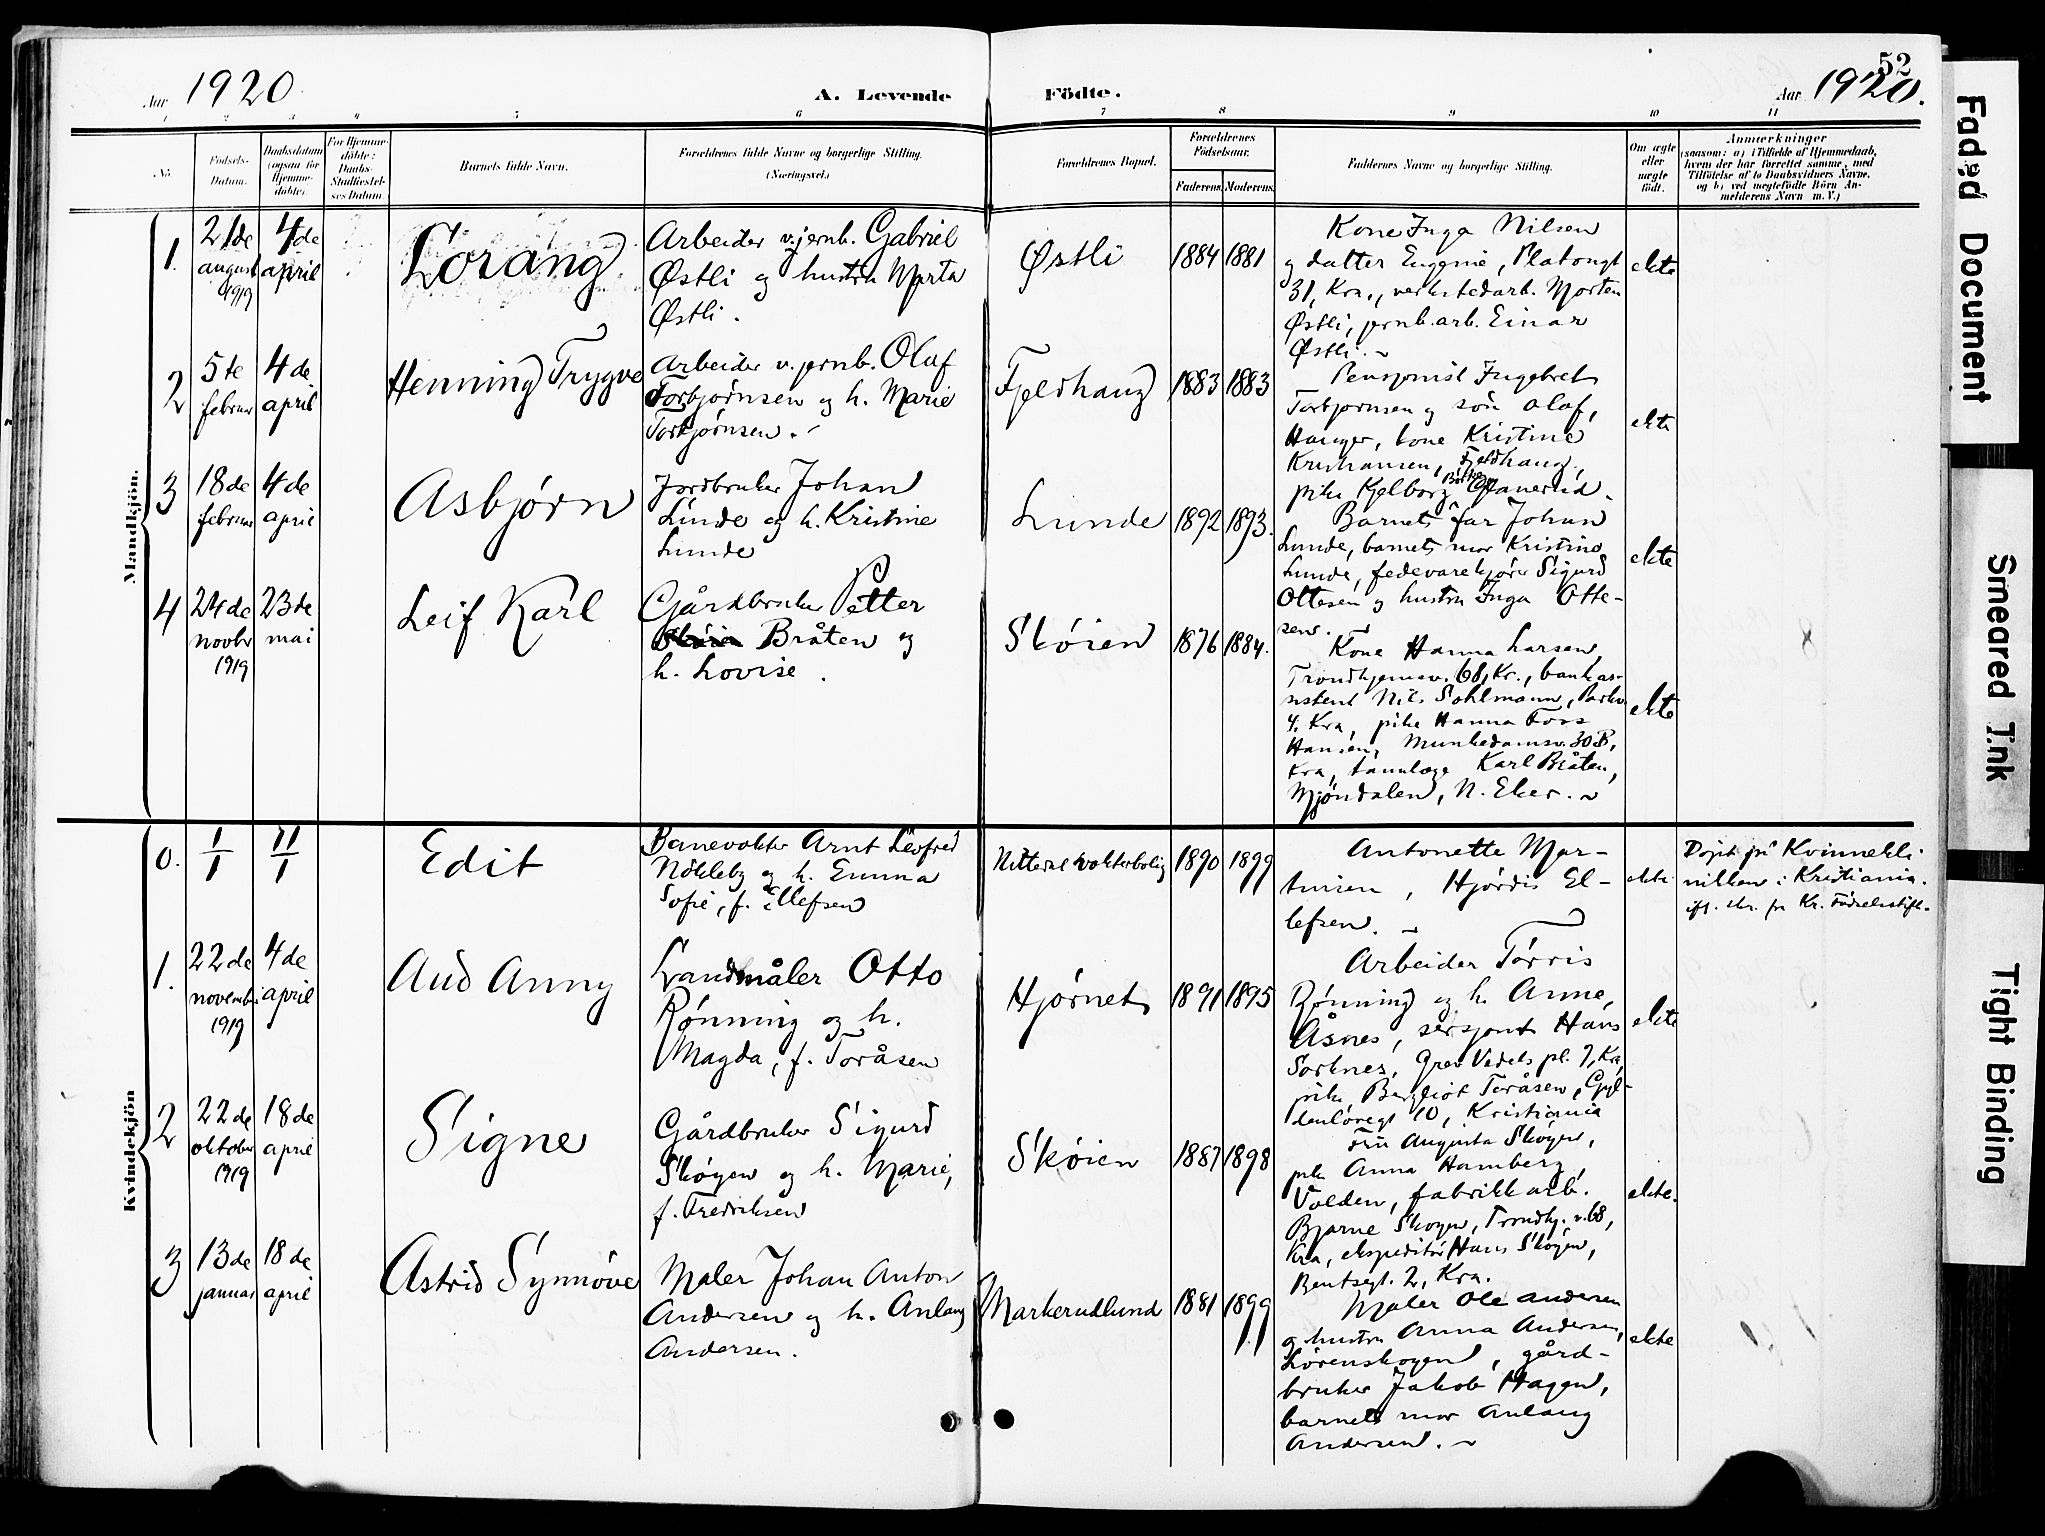 Aar 1920
A. Levende
Födte.
52
Aar 1920.
1 2 3 4 5 6 7 8 9 10 11
No.
Födsels-
Datum.
Daabsdatum
(ogsaa for
Hjemme-
döbte).
For Hjemme-
döbte:
Daabs-
Stadfæstel-
ses Datum
Barnets fulde Navn.
Forældrenes fulde Navne og borgerlige Stilling.
(Næringsvei.)
Forældrenes Bopæl.
Forældrenes
Födselsaar.
Faderens.
Moderens.
Faddernes Navne og borgerlige Stilling.
Om ægte
eller
uægte
födt.
Anmærkninger
(saasom: a) i Tilfælde af Hjemmedaab,
hvem der har forrettet samme, med
Tilföielse af to Daabsvidners Navne.
og b) ved uægtefödte Börn An-
melderens Navn m. V.)
Mandkjön.
1.
21de
august
1919
4de
april
Lorang
Arbeider v. jernb. Gabriel
Østli og hustru Marta
Østli.
Østli
1884
1881
Kone Inga Nilsen
og datter Eugenie, Platougt
31, Kra., verkstedarb. Morten
Østli, jernb.arb. Einar
Østli.
ekte
2
5te
februar
4de
april
Henning Trygve
Arbeider v. jernb. Olaf
Torbjørnsen og h. Marie
Torbjørnsen.
Fjeldhaug
1883
1883
Pensjonist Ingebret
Torbjørnsen og søn Olaf,
Hauger, kone Kristine
Kristiansen, Fjeldhaug,
pike Kjelborg
ekte
3
18de
februar
4de
april
Asbjørn
Jordbruker Johan
Lunde og h. Kristine
Lunde
Lunde
1892
1893.
Barnets far Johan
Lunde, barnets mor Kristine
Lunde, fedevarekjører Sigurd
Ottesen og hustru Inga Otte-
sen.
ekte
4
24de
novbr
1919
23de
mai
Leif Karl
Gårdbruker Petter
Bråten og
h. Lovise.
Skøien
1876
1884.
Kone Hanna Larsen,
Trondhjemsv. 68, Kr., bankas-
sistent Nils Sohlmann, Parkv.
4, Kra, pike Hanna Foss
Hansen, Munkedamsv. 30B,
Kra, tannlæge Karl Bråten,
Mjøndalen, N. Eker.
ekte
Kvindekjön
0.
1/1
11/1
Edit
Banevokter Arnt Leofred
Nökleby og h. Emma
Sofie, f. Ellefsen
vokterbolig
1890
1899
Antonette Mar-
tinsen, Hjørdis El-
lefsen.
ekte
Døpt på Kvinnekli
nikken i Kristiania.
ift. skr. fr Kr. Fødselsstift.
1.
22de
november
1919
4de
april
Aud Anny
Landmåler Otto
Rønning og h.
Magda, f. Toråsen
Hjørnet
1891
1895
Arbeider Torris
Rønning og h. Anne,
Åsnes, sersjant Hans
Sorknes, Grev Vedels pl. 7, Kra,
pike Bergliot Toråsen, Gyl-
denløvegt 10, Kristiania
ekte
2
22de
oktober
1919
18de
april
Signe
Gårdbruker Sigurd
Skøyen og h. Marie,
f. Fredriksen
Skøien
1887
1898
Fru Augusta Skøyen,
pike Anna Hamberg,
Volden, fabrikkarb.
Bjarne Skøyen, Trondhj. v. 68,
Kra, ekspeditør Hans Skøyen,
Bentsegt. 2, Kra.
ekte.
3
13de
januar
18de
april
Astrid Synnöve
Maler Johan Anton
Andersen og h. Anlaug
Andersen.
Markerudlund
1881
1899
Maler Ole Andersen
og hustru Anna Andersen,
Lørenskogen, gård-
bruker Jakob Hagen,
barnets mor Anlaug
Andersen.
ekte
Faded Document
Smeared Ink
Tight Binding